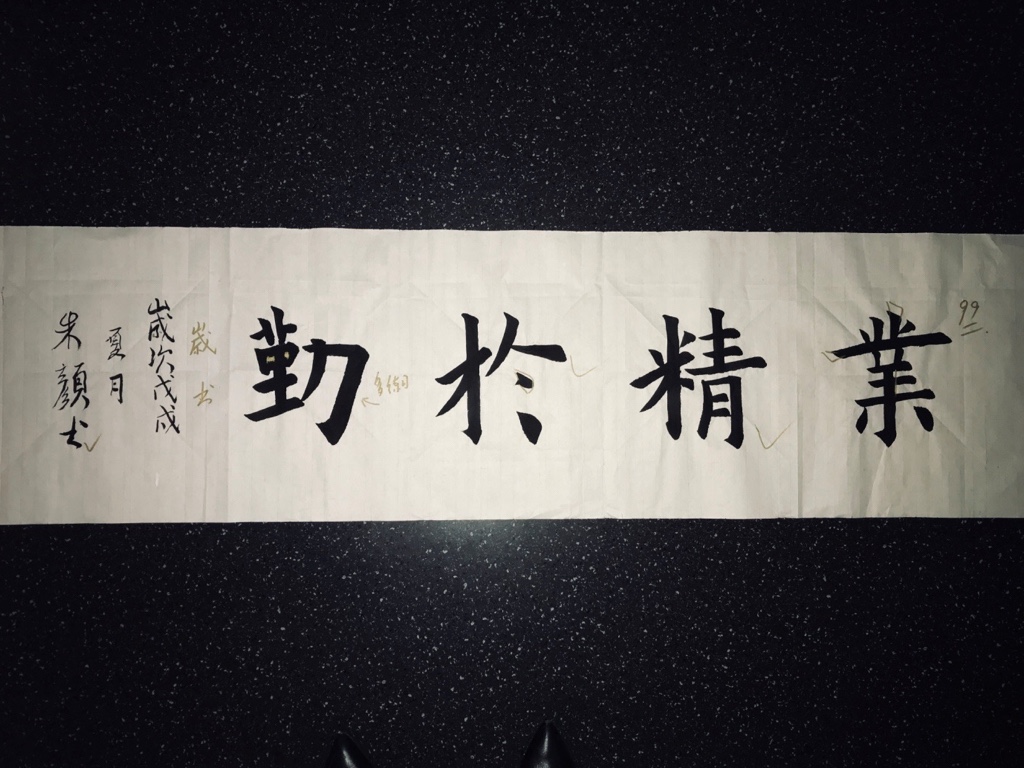 業精於勤
歲次戊戌
夏月
朱顏书
99
歲
书